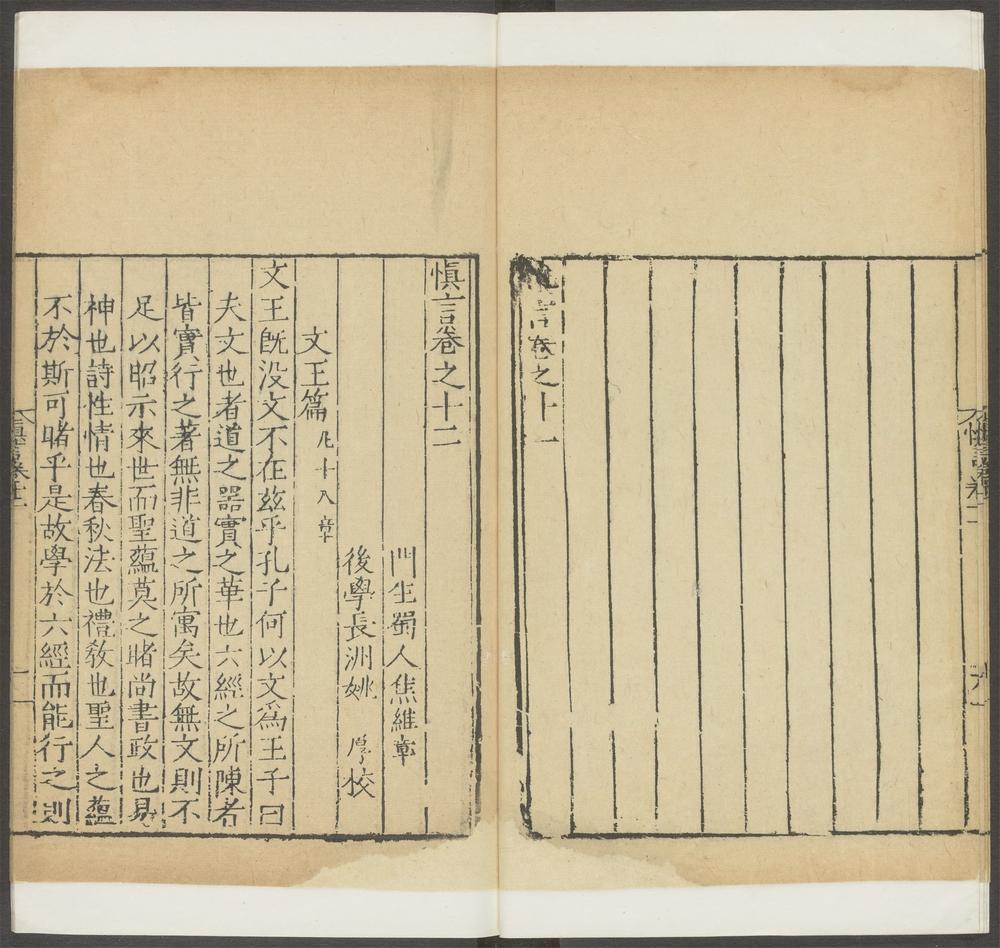 言卷之十一
慎言卷之十二
門生蜀人焦維章
後學長洲姚 厚校
文王篇凡十八章
文王旣没文不在玆乎孔子何以文爲王子曰
夫文也者道之器實之華也六經之所陳者
皆實行之著無非道之所寓矣故無文則不
足以昭示來世而聖蘊莫之睹尚書政也易
神也詩性情也春秋法也禮敎也聖人之蘊
不於斯可睹乎是故學於六經而能行之則